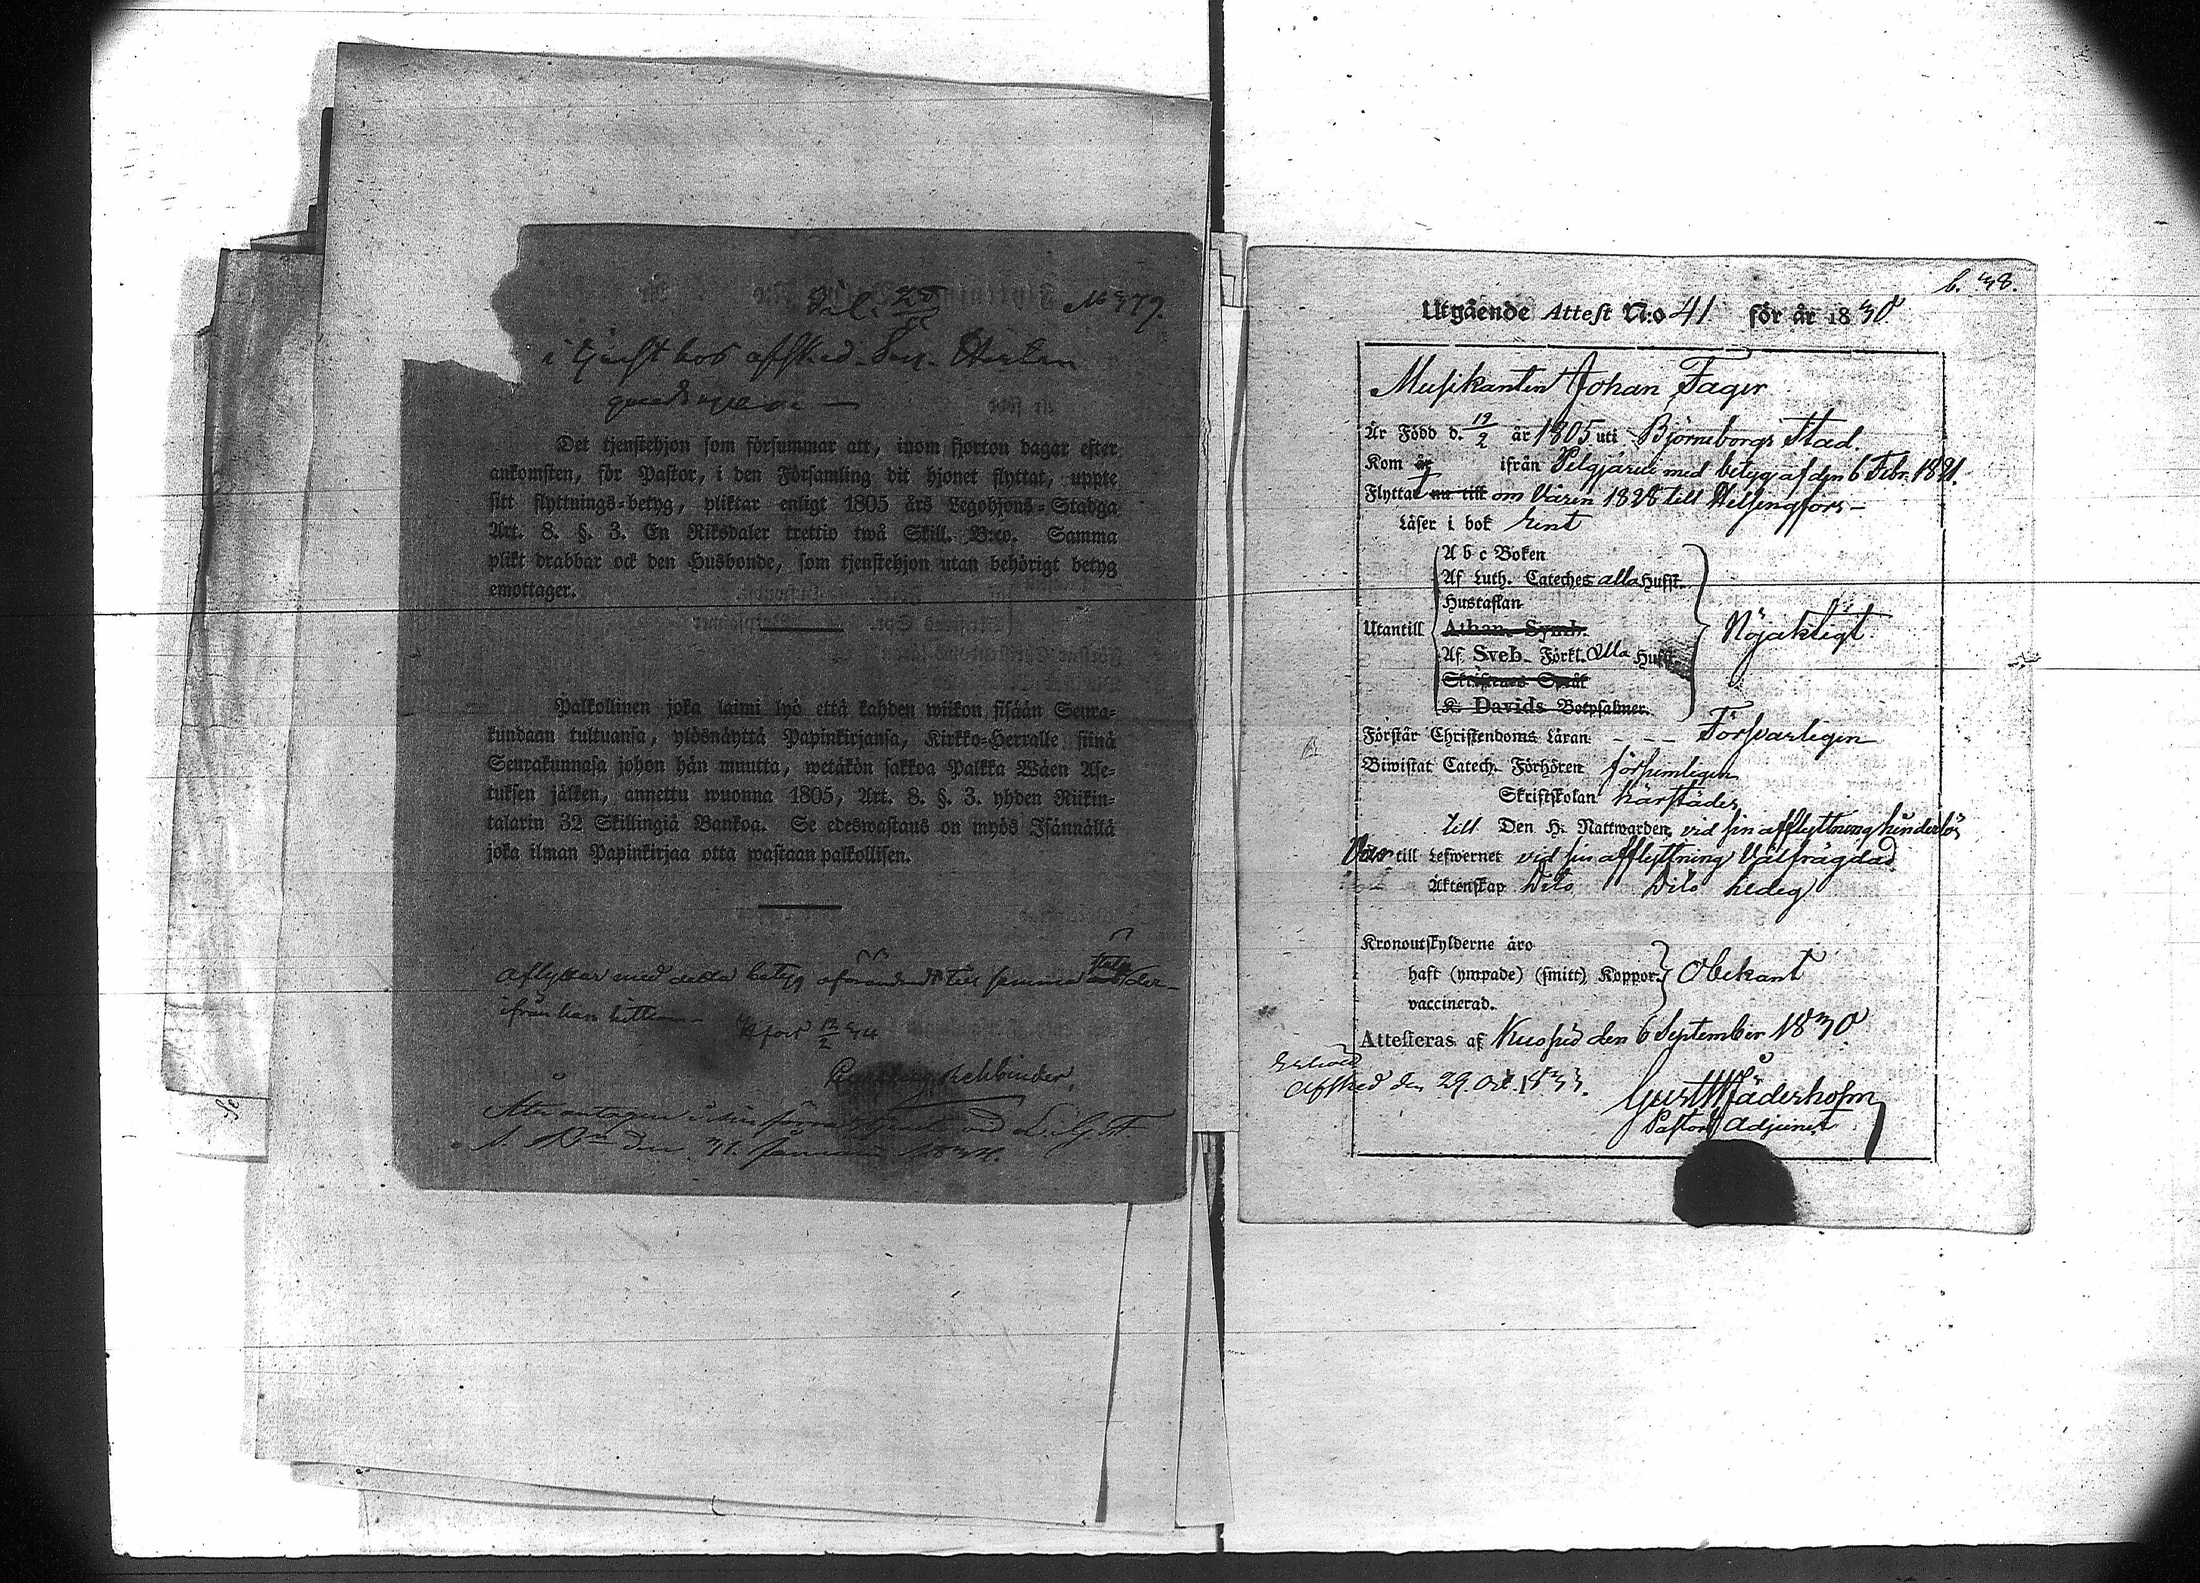 Fol. 25 No 379.
i tjenst hos afsked.
Det tjenstehjon som försummar att, inom fjorton dagar efter
ankomsten, för Pastor, i den Församling dit hjonet flyttat, uppte
sitt flyttnings-betyg, pliktar enligt 1805 års Legohjons-Stadga
Art. 8. §. 3. En Riksdaler trettio twå Skill. B:co. Samma
plikt drabbar ock den Husbonde, som tjenstehjon utan behörigt betyg
emottager.
Palkollinen joka laimi lyö että kahden wiikon sisään Seura-
kundaan tultuansa, ylösnäyttä Papinkirjansa, Kirkko-Herralle siinä
Seurakunnasa johon hän muutta, wetäkön sakkoa Palkka Wäen Ase-
tuksen jälken, annettu wuonna 1805, Art. 8. §. 3. yhden Riikin-
talarin 32 Skillingiä Bankoa. Se edeswastaus on myös Isännällä
joka ilman Papinkirjaa otta wastaan palkollisen.
Aflyttar med detta betyg oförändradt till samma der-
ifrån han
H:fors 12/2 34
Rehbinder,
Åter antagen i sin förra
den 31. Januari 1834.
b. 38.
Utgående Attest N:o 41 för år 1830
Musikanten Johan Fager
Är Född d. 19/2 år 1805 uti Björneborgs Stad.
Kom år ifrån med betyg af den 6 Febr. 1821.
Flyttat nu till om Våren 1828 till Helsingfors –
Läser i bok rent
A b c Boken
Af Luth. Cateches alla Hufst.
Hustaflan
Utantill Athan. Symb. Nöjaktigt
Af Sveb. Förkl. alla Hufst.
Skriftenes Språk
K. Davids Botpsalmer.
Förstår Christendoms Läran - - - Försvarligen
Biwistat Catech. Förhören försumligen
Skriftskolan härstädes
till Den H. Nattwarden, vid sin afflyttning hinderlös
Var till Lefwernet vid sin afflyttning Välfrägdad
Äktenskap Dito Dito ledig
Kronoutskylderne äro
haft (ympade) (smitt) Koppor. Obekant
vaccinerad.
Attesteras af Kuopio den 6 September 1830
Erhöll
Afsked den 29 Oct. 1833.
Gust Wäderholm
Pastors Adjunct